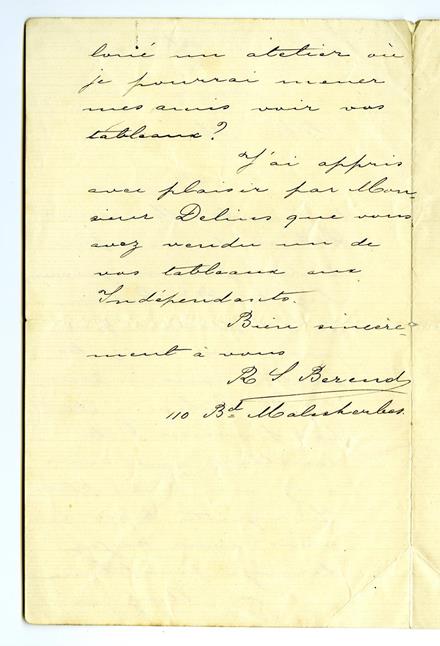 loué un atelier où
je pourrai mener
mes amis voir vos
tableaux?
J'ai appris
avec plaisir par Mon-
sieur Delines que vous
avez vendu un de
vos tableaux aux
Indépendants.
Bien sincère-
ment à vous
R S Berend
110 Bd Malesherbes.